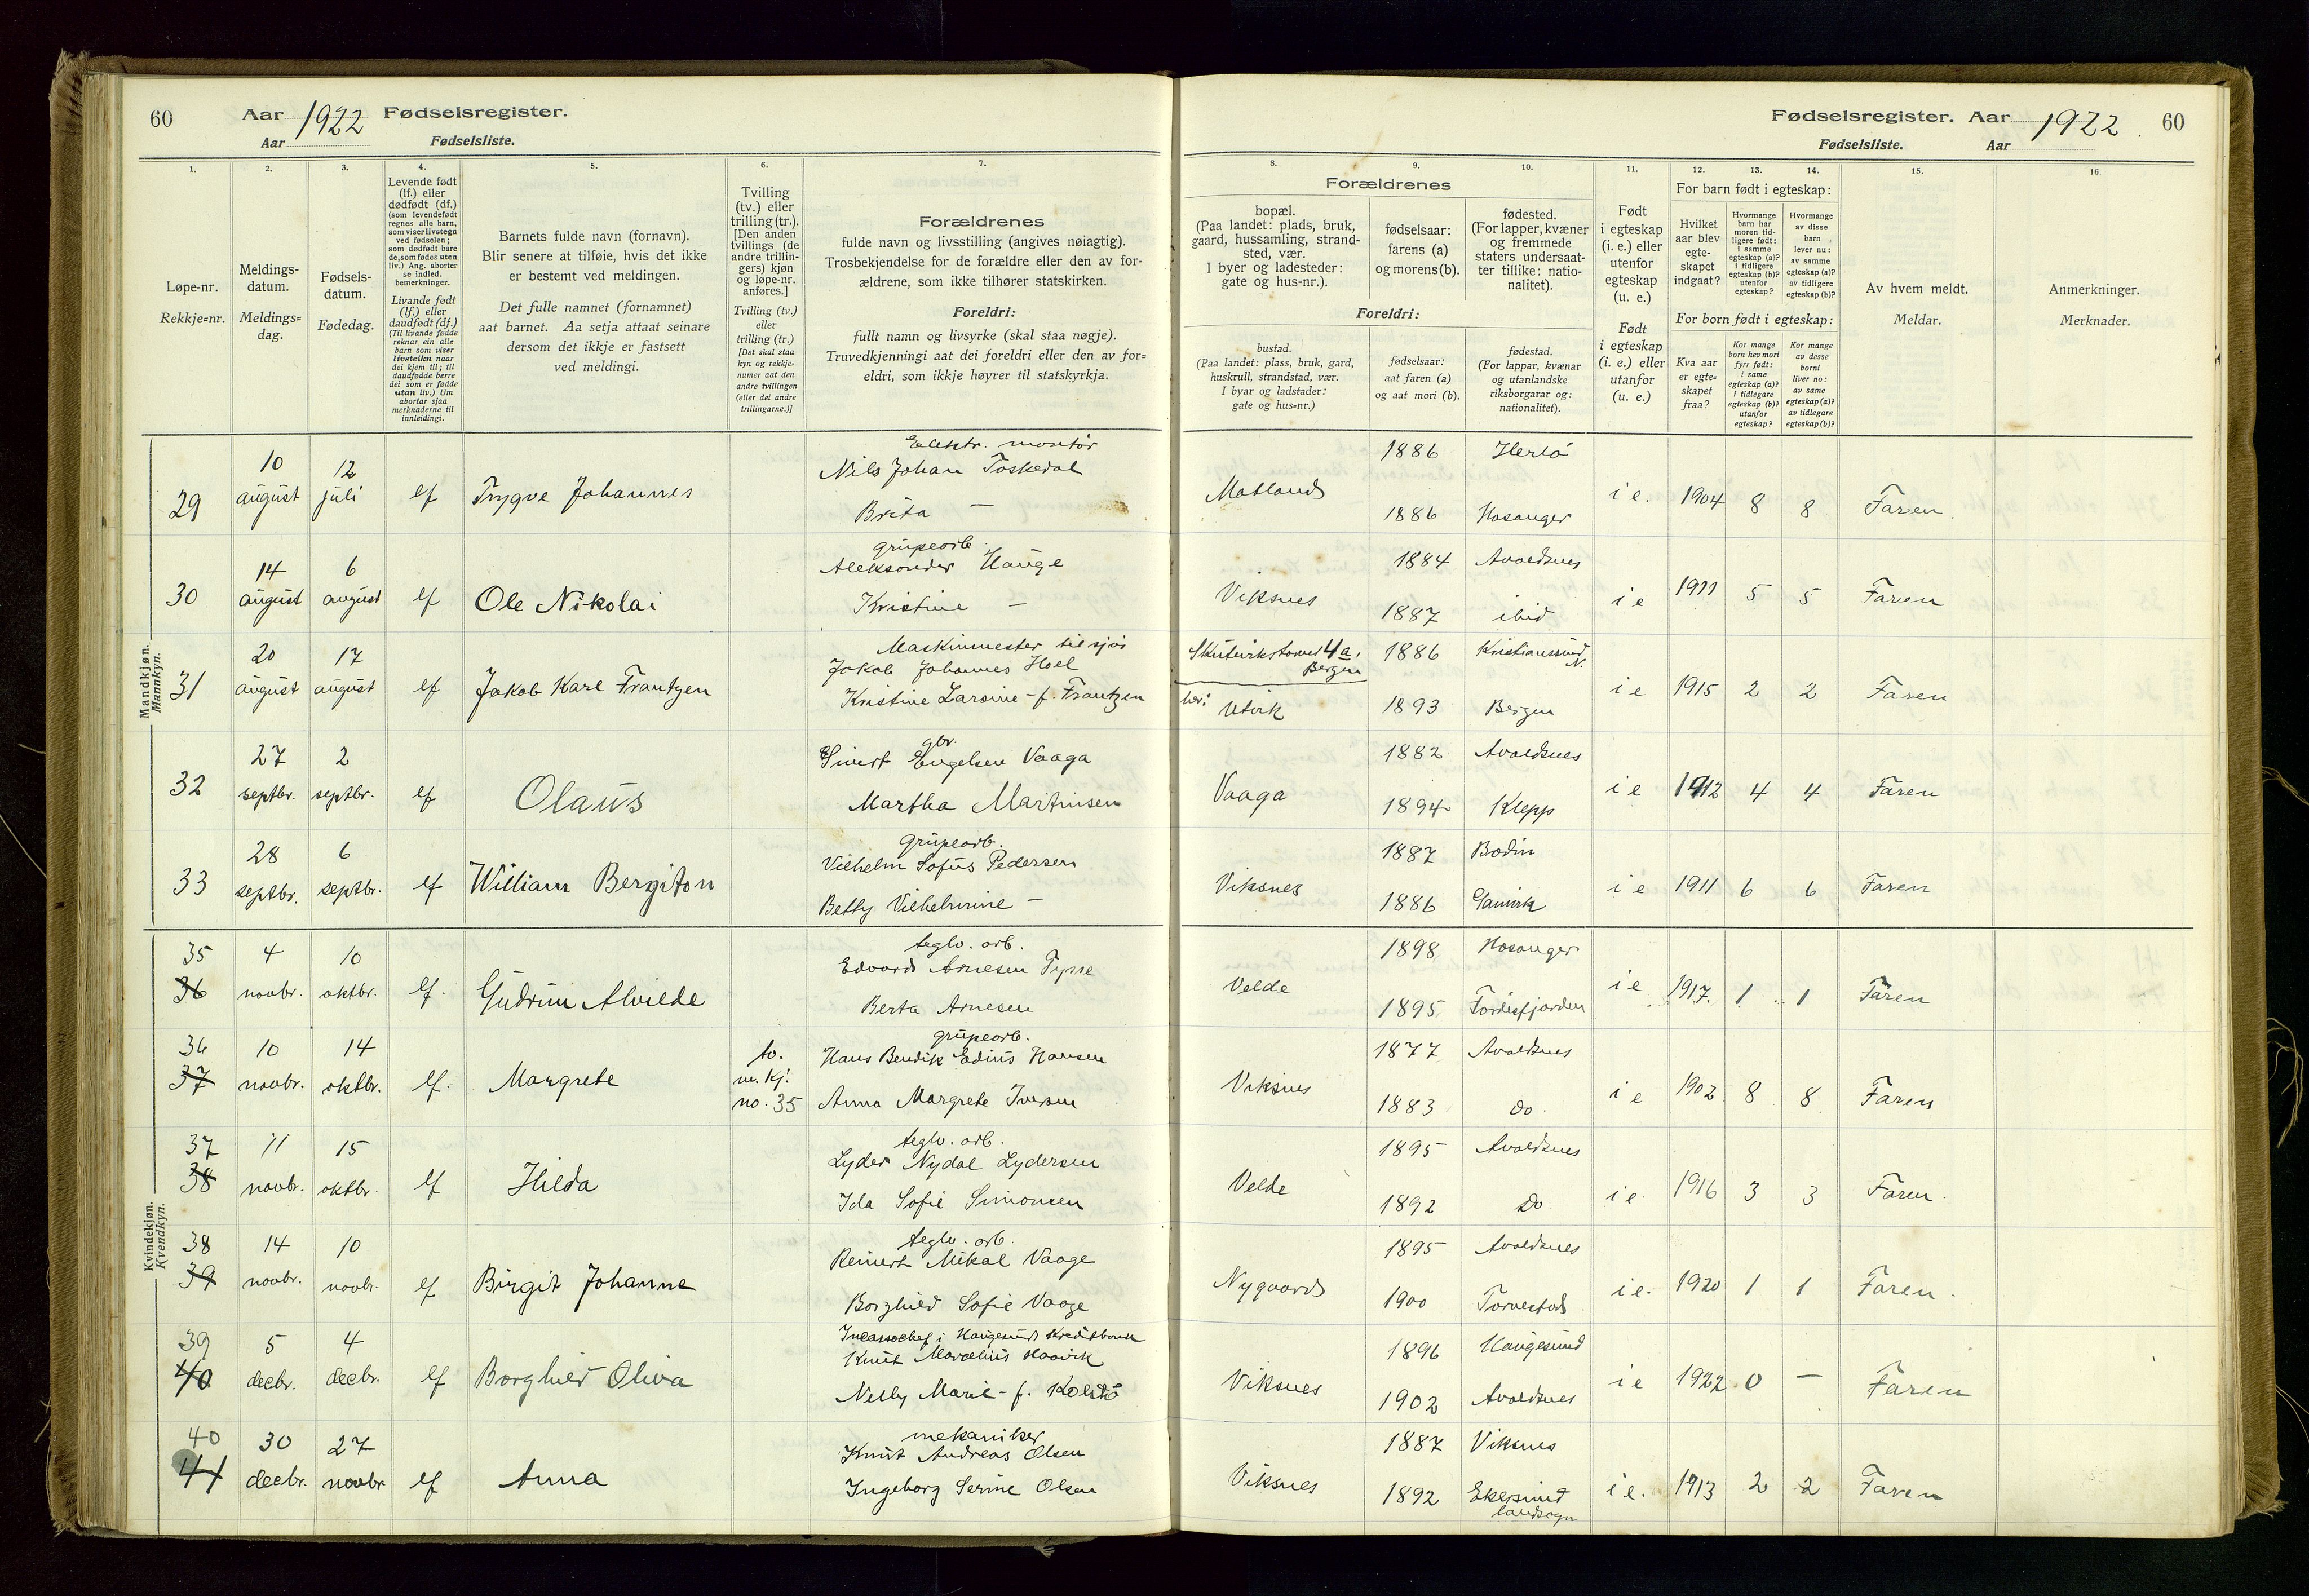 60
Aar 1922 Fødselsregister.
Aar
Fødselsliste.
1.
2.
3.
4.
5.
6.
7.
Løpe-nr.
Rekkje=nr.
Meldings-
datum.
Meldings=
dag.
Fødsels-
datum.
Fødedag.
Levende født
(lf.) eller
dødfødt (df.)
(som levendefødt
regnes alle barn,
som viser livstegn
ved fødselen;
som dødfødt bare
de, som fødes uten
liv.) Ang. aborter
se indled.
bemerkninger.
Livande født
(lf.) eller
daudfødt (df.)
(Til livande fødde
reknar ein alle
barn som viser
livsteikn naar
dei kjem til; til
daudfødde berre
dei som er fødde
utan liv.) Um
abortar sjaa
merknaderne til
innleidingi.
Barnets fulde navn (fornavn).
Blir senere at tilføie, hvis det ikke
er bestemt ved meldingen.
Det fulle namnet (fornamnet)
aat barnet. Aa setja attaat seinare
dersom det ikkje er fastsett
ved meldingi.
Tvilling
(tv.) eller
trilling (tr.).
[Den anden
tvillings (de
andre trillin-
gers) kjøn
og løpe-nr.
anføres.]
Tvilling (tv.)
eller
trilling (tr.)
[Det skal staa
kyn og rekkje-
numer aat den
andre tvillingen
(eller dei andre
trillingarne.)]
Forældrenes
fulde navn og livsstilling (angives nøiagtig).
Trosbekjendelse for de forældre eller den av for-
ældrene, som ikke tilhører statskirken.
Foreldri:
fullt namn og livsyrke (skal staa nøgje).
Truvedkjenningi aat dei foreldri eller den av for=
eldri, som ikkje høyrer til statskyrkja.
Mandkjøn.
Mannkyn.
29
10 august
12 juli
lf
Trygve Johannes
Elektr. montør
Nils Johan Toskedal
Brita —
30
14 august
6 august
lf
Ole Nikolai
grubearb.
Aleksander Hauge
Kristine —
31
20 august
17 august
lf
Jakob Karl Frantzen
Maskinmester tilsjøs
Jakob Johannes Hoel
Kristine Larsine - f. Frantzen
32
27 septbr.
2 septbr.
lf
Olaus
gbr.
Sivert Engelsen Vaaga
Martha Martinsen
33
28 septbr.
6 septbr.
lf
William Bergiton
Grubearb.
Vilhelm Sofus Pedersen
Betty Vilhelmine —
Kvindekjøn.
Kvendkyn.
35
36
4 novbr.
10 oktbr.
lf.
Gudrun Alvilde
teglv. arb.
Edvard Arnesen Tysse
Berta Arnesen
36
37
10 novbr.
14 oktbr.
lf.
Margrete
tv.
m. kj.
no. 35
grubearb.
Hans Bendik Edius Hansen
Anna Margrete Iversen
37
38
11 novbr.
15 oktbr.
lf
Hilda
teglv. arb.
Lyder Nydal Lydersen
Ida Sofie Simonsen
38
39
14 novbr.
10 novbr.
lf
Birgit Johanne
teglv. arb.
Reinert Mikal Vaage
Borghild Sofie Vaage
39
40
5 decbr.
4 decbr.
lf
Borghild Oliva
Incassochef i Haugesunds Kreditbank
Knut Marcelius Haavik
Nelly Marie - f. Kolstø
40
41
30 decbr.
27 novbr
lf
Anna
mekaniker
Knut Andreas Olsen
Ingeborg Serine Olsen
Fødselsregister. Aar 1922
60
Fødselsliste.
Aar
8.
9.
10.
11.
12.
13.
14.
15.
16.
Forældrenes
bopæl.
(Paa landet: plads, bruk,
gaard, hussamling, strand-
sted, vær.
I byer og ladesteder:
gate og hus-nr.).
fødselsaar:
farens (a)
og morens (b).
fødested.
(For lapper, kvæner
og fremmede
staters undersaat-
ter tillike: natio-
nalitet).
Foreldri:
bustad.
(Paa landet: plass, bruk, gard,
huskrull, strandstad, vær.
I byar og ladstader:
gate og hus=nr.)
fødselsaar:
aat faren (a)
og aat mori (b).
fødestad.
(For lappar, kvænar
og utanlandske
riksborgarar og:
nationalitet).
Født
i egteskap
(i. e.) eller
utenfor
egteskap
(u. e.)
Født
i egteskap
(i. e.) eller
utanfor
(u. e.)
For barn født i egteskap:
Hvilket
aar blev
egte-
skapet
indgaat?
Hvormange
barn har
moren tid-
ligere født:
i samme
egteskap (a)?
i tidligere
egteskap (b)?
utenfor
egteskap?
Hvormange
av disse
barn
lever nu:
av samme
egteskap (a)?
av tidligere
egteskap (b)?
For born født i egteskap:
Kva aar
er egte=
skapet
fraa?
Kor mange
born hev mori
fyrr født:
i same
egteskap (a)?
i tidlegare
egteskap (b)?
utanfor
egteskap?
Kor mange
av desse
borni
liver no:
av same
egteskap (a)?
av tidlegare
egteskap (b)?
Av hvem meldt.
Meldar.
Anmerkninger.
Merknader.
Matland
1886 Herlø
1886 Hosanger
i e. 1904 8 8 Faren.
Viksnes
1884 Avaldsnes
1887 ibid
i e 1911 5 5 Faren
Skuteviks 4 a. Bergen
her: Utvik
1886 Kristianssund N.
1893 Bergen
i e 1915 2 2 Faren
Vaaga
1882 Avaldsnes
1894 Klepp
i e 1912 4 4 Faren
Viksnes
1887 Bodin
1886 Gamvik
i e 1911 6 6 Faren
Velde
1898 Hosanger
1895 Førdesfjorden
i e 1917. 1 1 Faren
Viksnes
1877 Avaldsnes
1883 do.
i e 1902 8 8 Faren
Velde
1895 Avaldsnes
1892 do
i e. 1916 3 3 Faren.
Nygaard
1895 Avaldsnes
1900 Torvestad
i e. 1920 1 1 Faren.
Viksnes
1896 Haugesund
1902 Avaldsnes
i e 1922 0 — Faren
Viksnes
1887 Viksnes
1892 Ekersund landsogn
i e. 1913 2 2 Faren